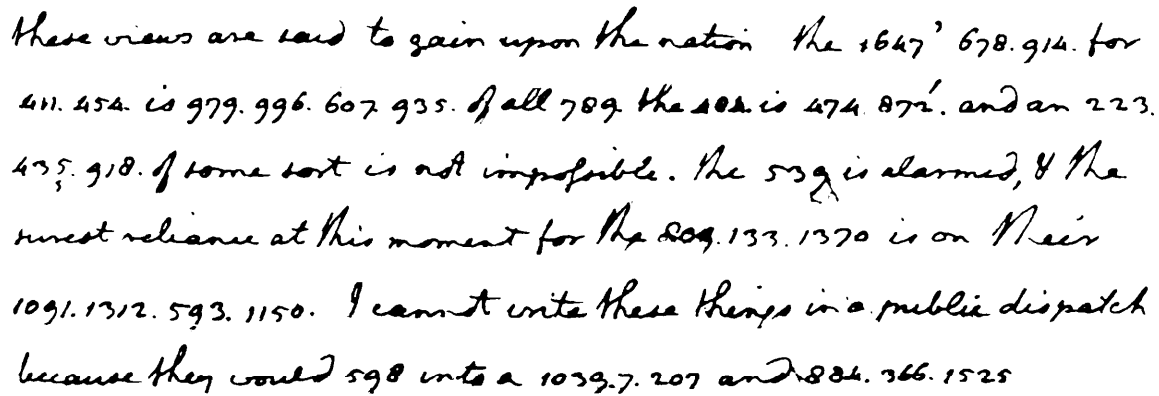 these views are said to gain upon the nation the 1647' 678. 914. for
411. 454. is 979. 996. 607. 935. of all 789 the 404 is 474. 872'. and an 223.
435. 918. of some sort is not impossible. the 539 is alarmed, & the
surest reliance at this moment for the 809. 133. 1370 is on their
1091. 1312. 593. 1150. I cannot write these things in a public dispatch
because they would 598 into a 1039. 7. 207 and 884. 366. 1525